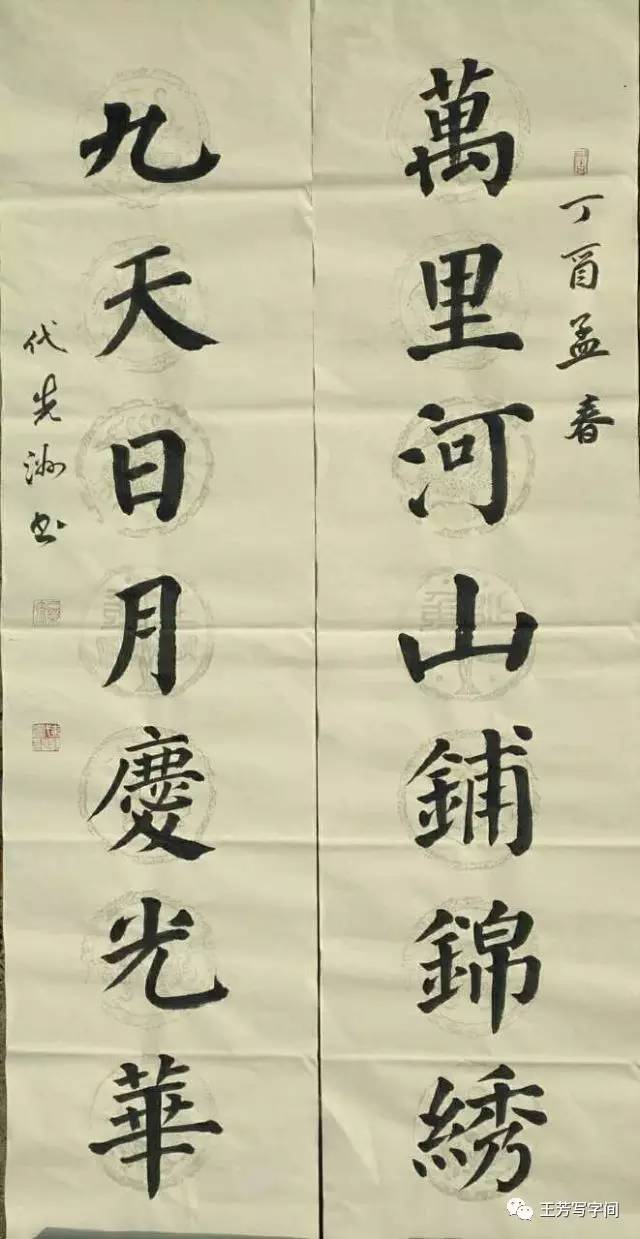 丁酉孟春
萬里河山鋪錦綉
九天日月慶光華
代先洲书
王芳写字间